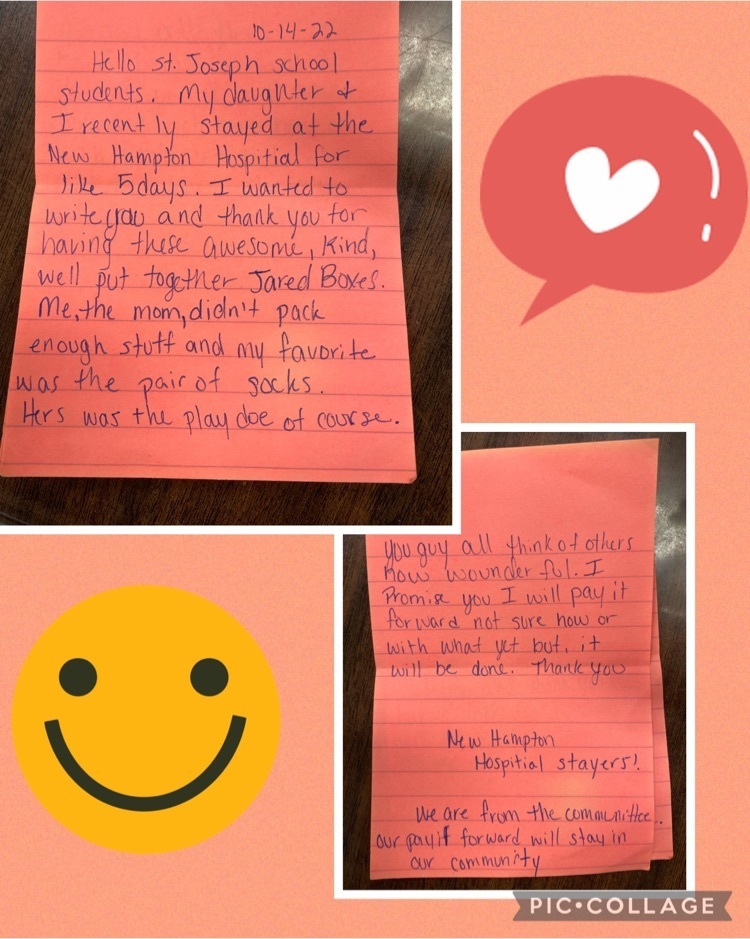 10-14-22
Hello St. Joseph school
students. My daughter &
I recently stayed at the
New Hampton Hospitial for
like 5days. I wanted to
write you and thank you for
having these awesome, kind,
well put together Jared Boxes.
Me, the mom, didn't pack
enough stuff and my favorite
was the pair of socks.
Hers was the play doe of course.
you guy all think of others
how wounder ful. I
Promise you I will pay it
forward not sure how or
with what yet but, it
will be done. Thank you
New Hampton
Hospitial stayers!
We are from the communittee..
our payit forward will stay in
our community
PIC•COLLAGE